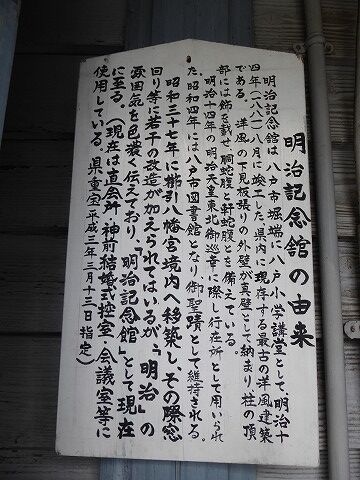 明治記念館の由来
明治記念館は八戸市堀端に八戸小学講堂として、明治十
四年(一八八一)八月に竣工した県内に現存する最古の洋風建築
である。洋風の下見板張りの外壁が真壁として納まり柱の頂
部には飾を載せ、胴蛇腹と軒蛇腹とを備えている。
明治十四年の明治天皇東北御巡幸に際し行在所として用いられ
た。昭和四年には八戸市図書館となり御聖蹟として維持される。
昭和三十七年に櫛引八幡宮境内へ移築し、その際窓
回り等に若干の改造が加えられてはいるが、「明治」の
雰囲気を色濃く伝えており、「明治記念館」として現在
に至る。(現在は直会所・神前結婚式控室・会議室等に
使用している。県重宝平成三年三月十三日指定)